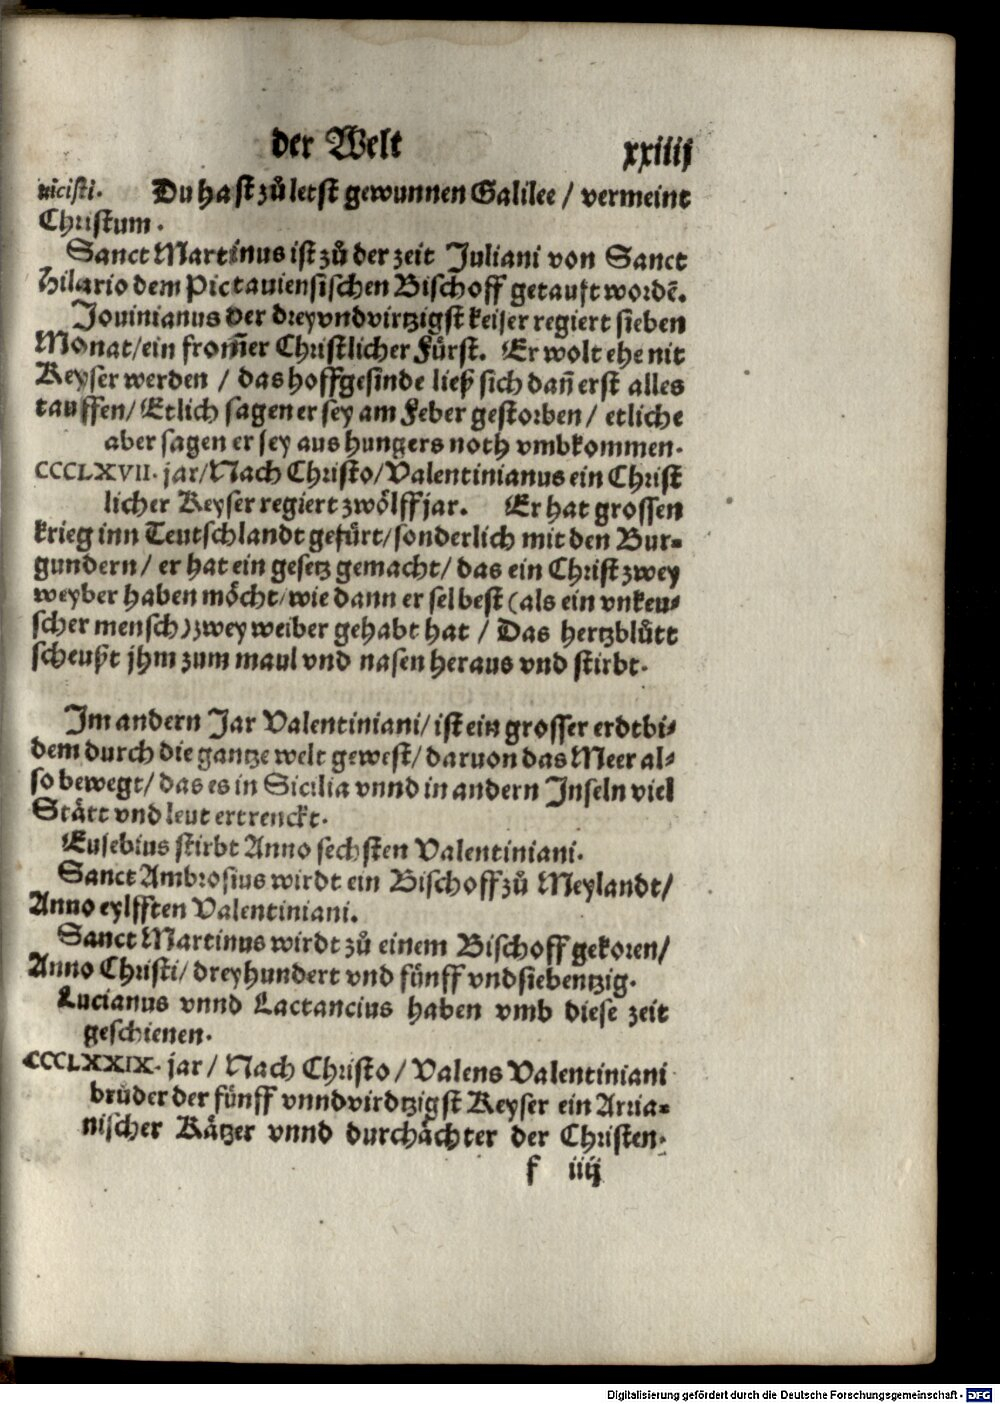 der Welt xxiiij
uicisti. Du hast zů letst gewunnen Galilee / vermeint
Christum.
Sanct Martinus ist zů der zeit Juliani von Sanct
Hilario dem Pictauiensischen Bischoff getaufft wordẽ.
Jouinianus der dreyvndvirtzigst keiser regiert sieben
Monat/ein from̃er Christlicher Fürst. Er wolt ehe nit
Keyser werden / das hoffgesinde ließ sich dañ erst alles
tauffen/ Etlich sagen er sey am Feber gestorben / etliche
aber sagen er sey aus hungers noth vmbkommen.
CCCLXVII. jar/Nach Christo/Valentinianus ein Christ
licher Keyser regiert zwölff jar. Er hat grossen
krieg inn Teutschlandt gefürt/sonderlich mit den Bur-
gundern / er hat ein gesetz gemacht/ das ein Christ zwey
weyber haben möcht/wie dann er selbest (als ein vnkeu-
scher mensch) zwey weiber gehabt hat / Das hertzblůtt
scheußt jhm zum maul vnd nasen heraus vnd stirbt.
Im andern Jar Valentiniani/ ist ein grosser erdtbi-
dem durch die gantze welt gewest/ daruon das Meer al-
so bewegt/ das es in Sicilia vnnd in andern Inseln viel
Stätt vnd leut ertrenckt.
Eusebius stirbt Anno sechsten Valentiniani.
Sanct Ambrosius wirdt ein Bischoff zů Meylandt/
Anno eylfften Valentiniani.
Sanct Martinus wirdt zů einem Bischoff gekoren/
Anno Christi/ dreyhundert vnd fünff vnd siebentzig.
Lucianus vnnd Lactancius haben vmb diese zeit
geschienen.
CCCLXXIX. jar / Nach Christo / Valens Valentiniani
brůder der fünff vnndvirdtzigst Keyser ein Arria-
nischer Kätzer vnnd durchächter der Christen.
f iiij
Digitalisierung gefördert durch die Deutsche Forschungsgemeinschaft - DFG